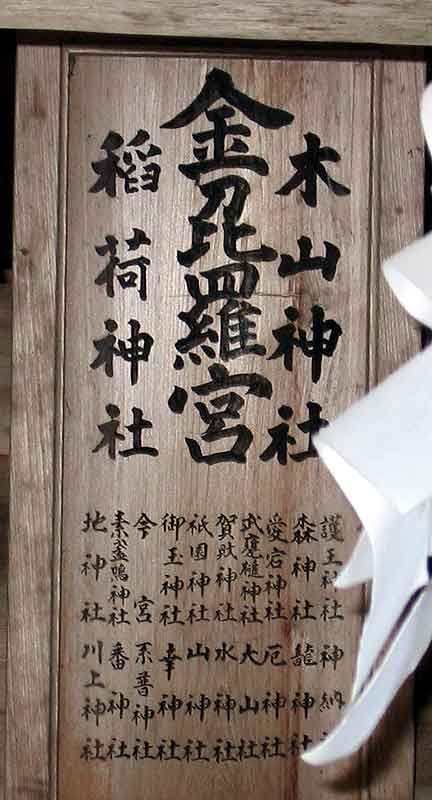 木山神社
金毘羅宮
稲荷神社
護王神社 神納
森神社 龍神社
愛宕神社 厄神社
武甕槌神社 大山社
賀茂神社 水神社
祇園神社 山神社
御玉神社 幸神社
今宮 系普神社
素盞嗚神社 番神社
地神社 川上神社